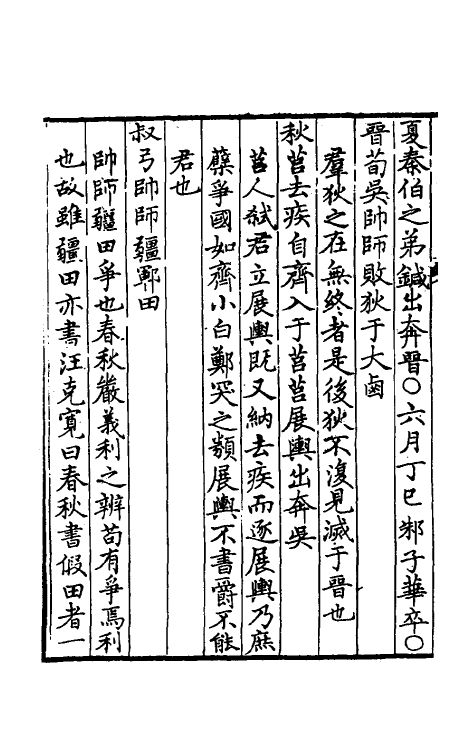 夏秦伯之弟鍼出奔晉〇六月丁巳邾子華卒〇
晉荀吳帥師敗狄于大鹵
羣狄之在無終者是後狄不復見滅于晉也
秋莒去疾自齊入于莒莒展輿出奔吳
莒人弑君立展輿既又納去疾而逐展輿乃庶
孽爭國如齊小白鄭突之類展輿不書爵不能
君也
叔弓帥師疆鄆田
帥師疆田爭也春秋嚴義利之辨苟有爭焉利
也故雖疆田亦書汪克寬曰春秋書假田者一